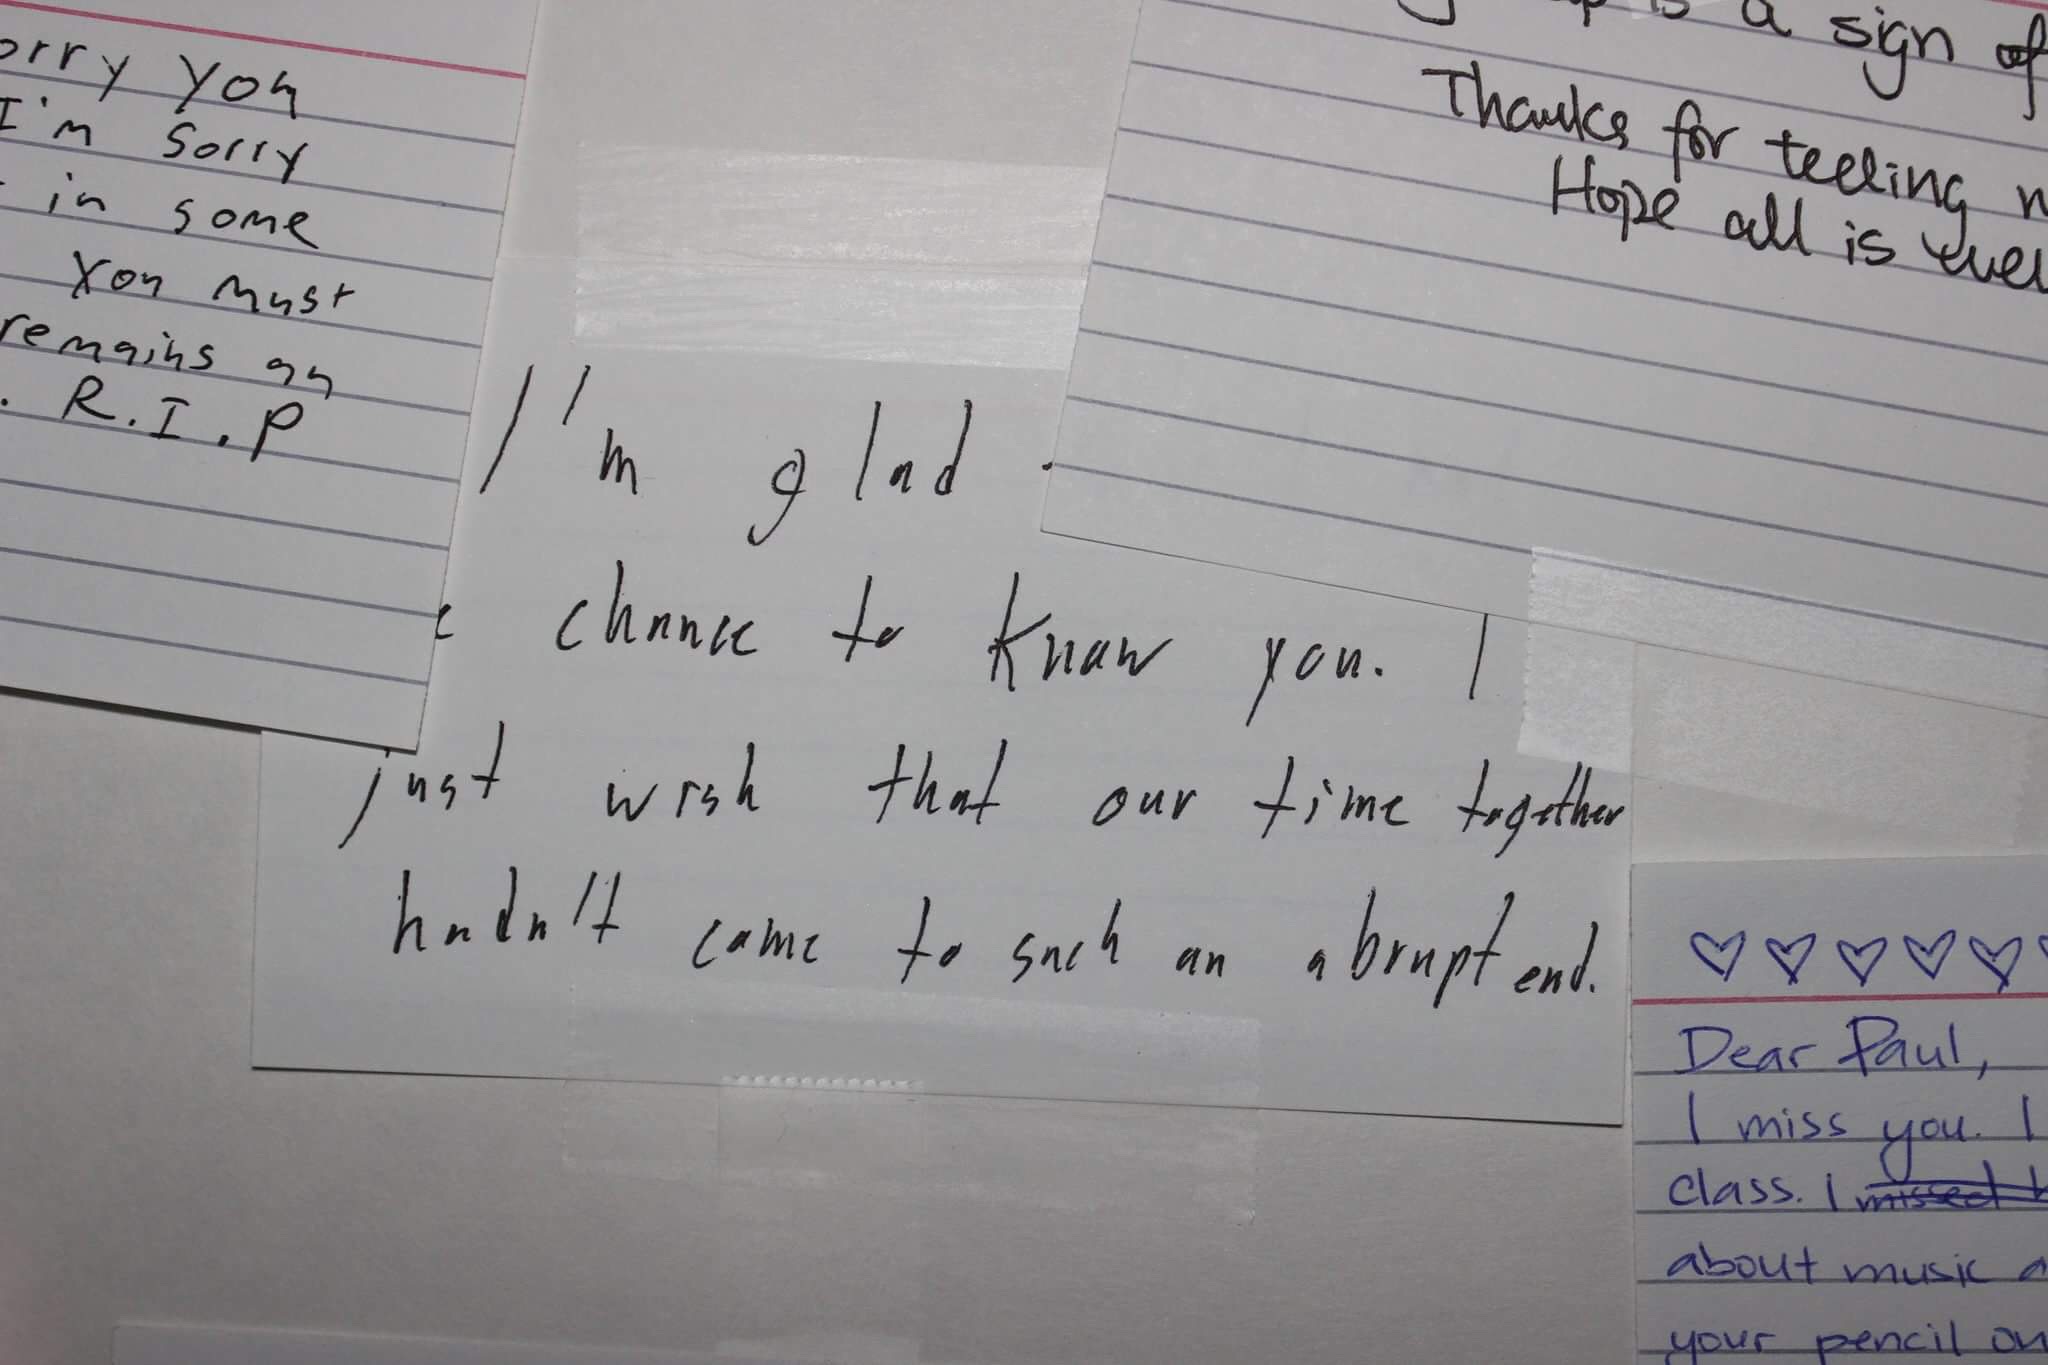 orry you
I'm sorry
in some
You must
remains an
. R.I.P
is a sign of
Thanks for telling
Hope all is
I'm glad
chance to know you. I
just wish that our time together
hadn't come to such an abrupt end.
♡ ♡ ♡ ♡ ♡
Dear Paul,
I miss you. I
class. I missed
about music
your pencil on